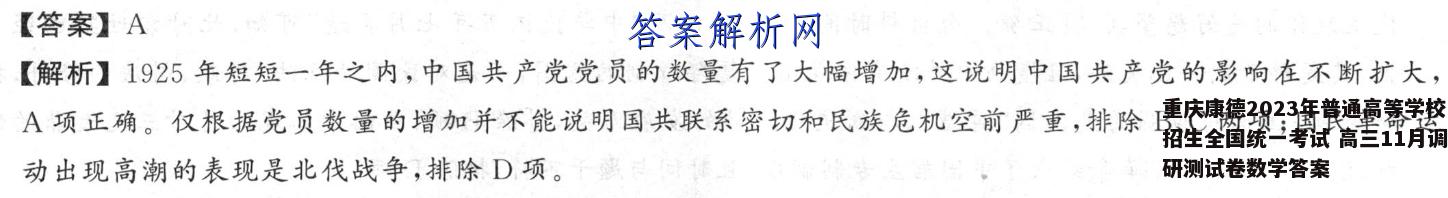 【答案】A
答案解析网
【解析】1925年短短一年之内,中国共产党党员的数量有了大幅增加,这说明中国共产党的影响在不断扩大,
A项正确。仅根据党员数量的增加并不能说明国共联系密切和民族危机空前严重,排除B、C两项;国民革命运
动出现高潮的表现是北伐战争,排除D项。
重庆康德2023年普通高等学校
招生全国统一考试 高三11月调
研测试卷数学答案